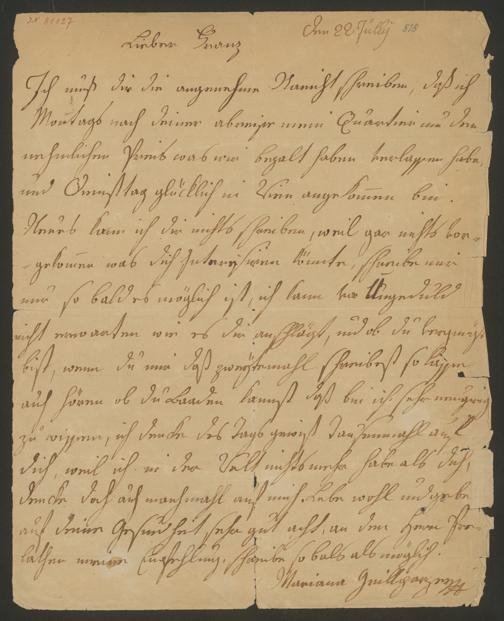 IN 81127
Den 22 Jully 818
Lieber Franz
Ich muß dir die angenehme Nariht schreiben, daß ich
Montags nach deiner abereise mein Quartier um den
nehmlichen Preis was wir bezalt haben verlassen habe,
und Dinstag glücklich in Wien angekomen bin.
Neues kann ich dir nichts schreiben, weil gar nichts vor-
-gekomen was dich Interesiren könte, schreibe mir
nur so bald es möglich ist, ich kann vor Ungeduld
nicht erwarten wie es dir anschlägt, und ob du vergnügt
bist, wenn du mir daß zweytemahl schreibest so lasse
auch hören ob du Baaden kannst daß bin ich sehr neugirig
zu wissen, ich dencke des Tags gewist Tausenmahl auf
dich, weil ich in der Welt nichts mehr habe als dich,
dencke doch auch manchmahl auf mich. Lebe wohl und gebe
auf deine Gesundheit sehr gut acht, an den Herrn
meine Empfehlung. schreibe so bald als möglich.
Mariana Grillparzer